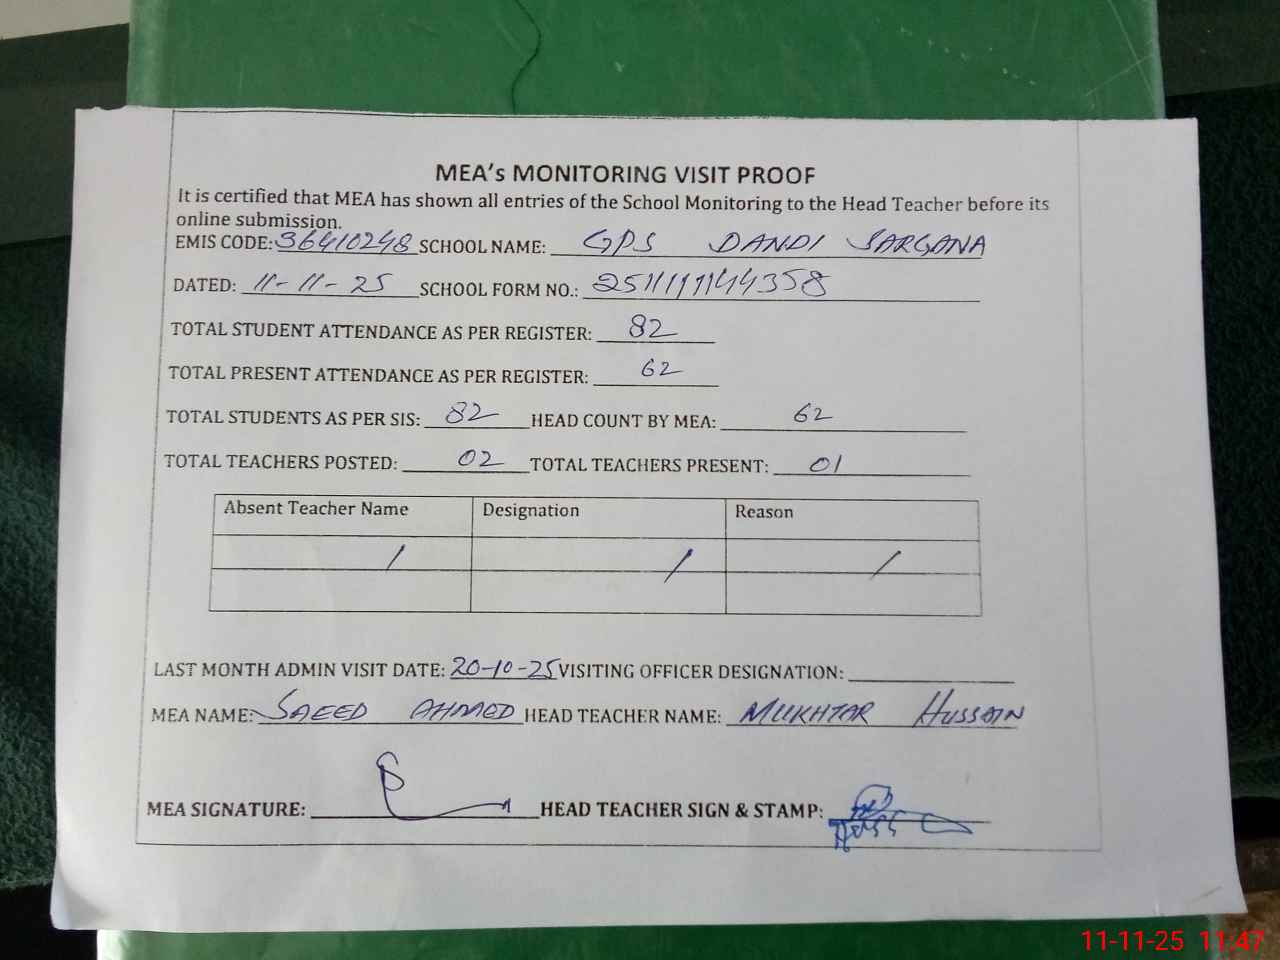 MEA's MONITORING VISIT PROOF
It is certified that MEA has shown all entries of the School Monitoring to the Head Teacher before its
online submission.
EMIS CODE: 36410248 SCHOOL NAME: GPS DANDI SARGANA
DATED: 11-11-25 SCHOOL FORM NO.: 251111144358
TOTAL STUDENT ATTENDANCE AS PER REGISTER: 82
TOTAL PRESENT ATTENDANCE AS PER REGISTER: 62
TOTAL STUDENTS AS PER SIS: 82 HEAD COUNT BY MEA: 62
TOTAL TEACHERS POSTED: 02 TOTAL TEACHERS PRESENT: 01
Absent Teacher Name Designation Reason
/ / /
LAST MONTH ADMIN VISIT DATE: 20-10-25 VISITING OFFICER DESIGNATION:
MEA NAME: SAEED AHMED HEAD TEACHER NAME: MUKHTAR HUSSAIN
MEA SIGNATURE: HEAD TEACHER SIGN & STAMP:
11-11-25 11:47